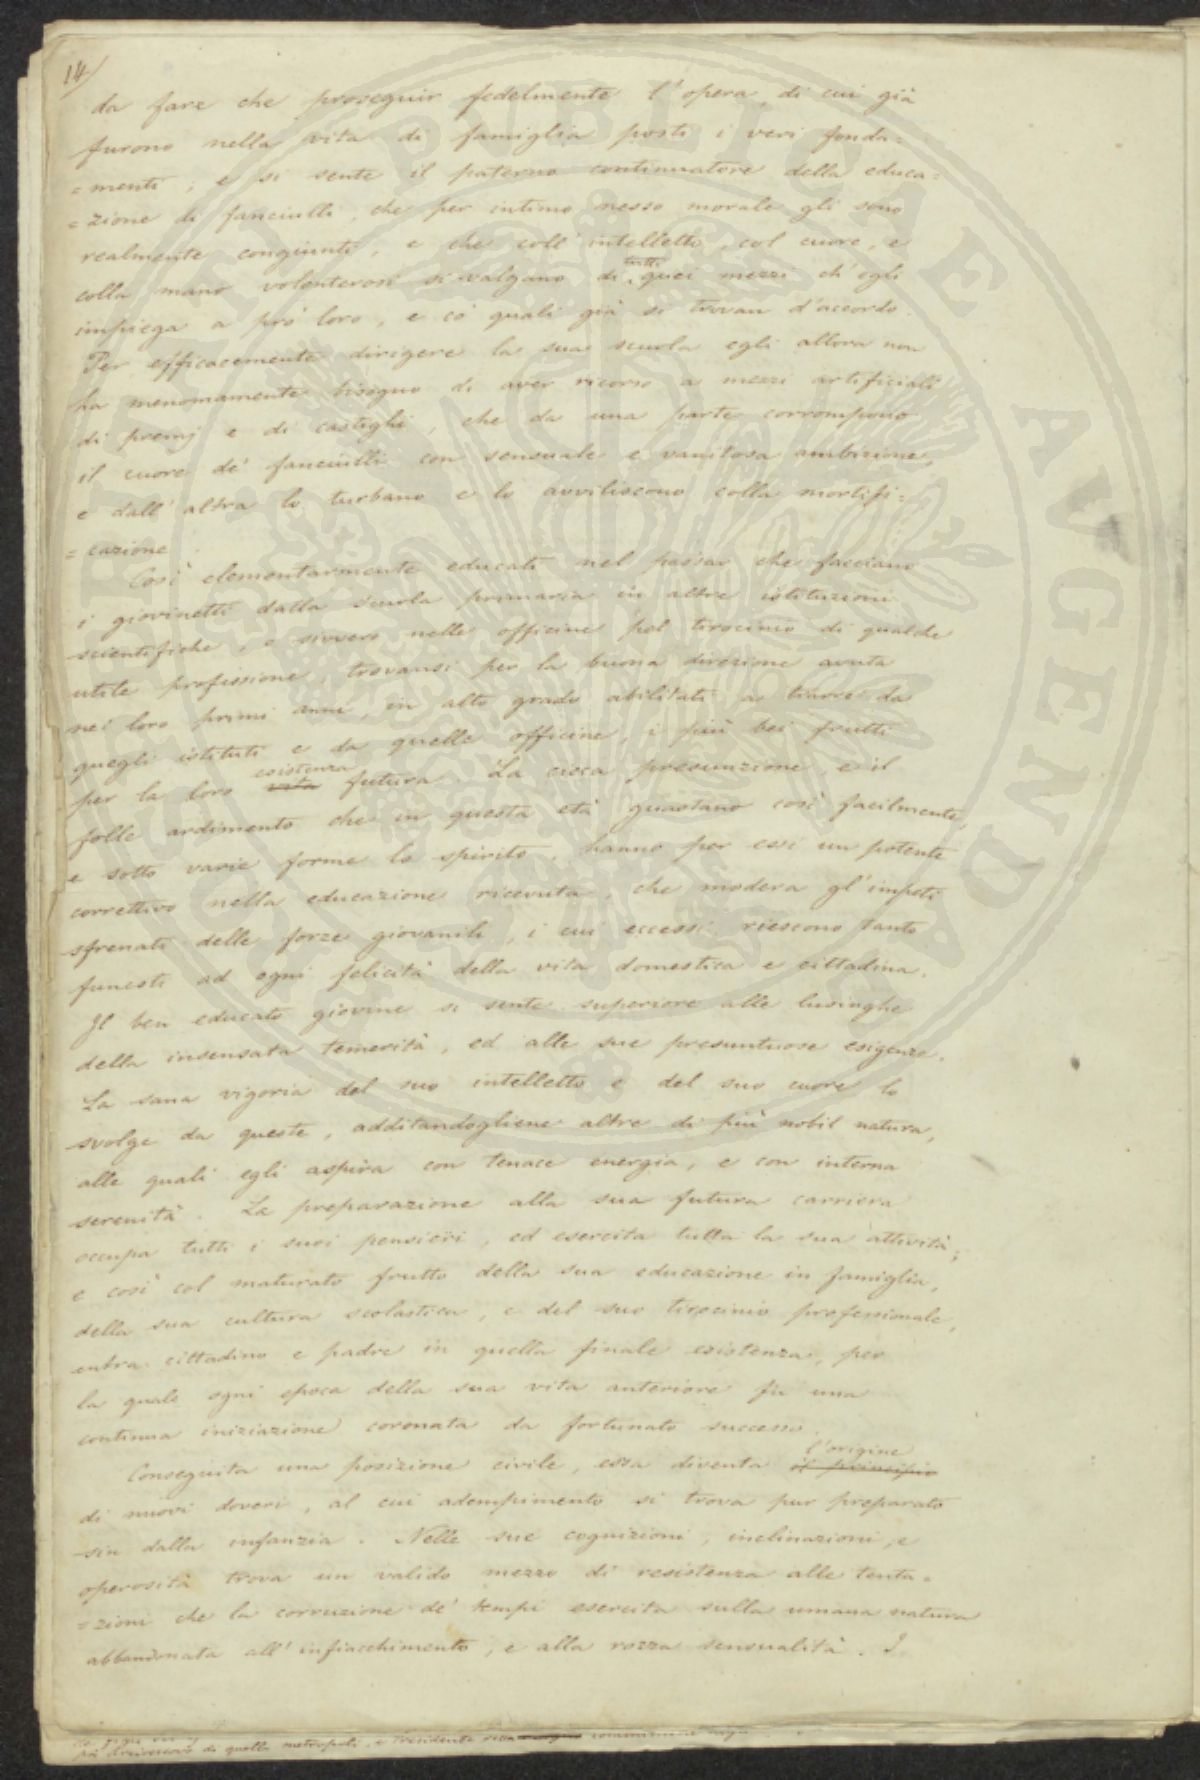 14/
da fare che proseguir fedelmente l'opera, di cui già
furono nella vita di famiglia posti i veri fonda=
=menti, e si sente il paterno continuatore della educa=
=zione di fanciulli, che per intimo nesso morale gli sono
realmente congiunti, e che coll'intelletto, col cuore, e
colla mano volenterosi si valgano di tutti quei mezzi ch'egli
impiega a prò loro, e co' quali già si trovan d'accordo.
Per efficacemente dirigere la sua scuola egli allora non
ha menomamente bisogno di aver ricorso a mezzi artificiali
di premj e di castighi, che da una parte corrompono
il cuore de' fanciulli con sensuale e vanitosa ambizione,
e dall'altra lo turbano e lo avviliscono colla mortifi=
=cazione.
Così elementarmente educati nel passar che facciano
i giovinetti dalla scuola primaria in altre istituzioni
scientifiche, o sivvero nelle officine pel tirocinio di qualche
utile professione, trovansi per la buona direzione avuta
nei loro primi anni, in alto grado abilitati a trarre da
quegli istituti e da quelle officine, i più bei frutti
per la loro vita esistenza futura. La cieca presunzione, e il
folle ardimento che in questa età guastano così facilmente,
e sotto varie forme lo spirito, hanno per essi un potente
correttivo nella educazione ricevuta, che modera gl'impeti
sfrenati delle forze giovanili, i cui eccessi riescono tanto
funesti ad ogni felicità della vita domestica e cittadina.
Il ben educato giovine si sente superiore alle lusinghe
della insensata temerità, ed alle sue presuntuose esigenze.
La sana vigoria del suo intelletto e del suo cuore lo
svolge da queste, additandogliene altre di più nobil natura,
alle quali egli aspira con tenace energia, e con interna
serenità. La preparazione alla sua futura carriera
occupa tutti i suoi pensieri, ed esercita tutta la sua attività;
e così col maturato frutto della sua educazione in famiglia,
della sua cultura scolastica, e del suo tirocinio professionale,
entra cittadino e padre in quella finale esistenza, per
la quale ogni epoca della sua vita anteriore fu una
continua iniziazione coronata da fortunato successo.
Conseguita una posizione civile, essa diventa il principio l'origine
di nuovi doveri, al cui adempimento si trova pur preparato
sin dalla infanzia. Nelle sue cognizioni, inclinazioni, e
operosità trova un valido mezzo di resistenza alle tenta=
=zioni che la corruzione de' tempi esercita sulla umana natura
abbandonata all'infiacchimento, e alla rozza sensualità. I
di quella metropoli, e Presidente
PVBLICAE AVGENDAE